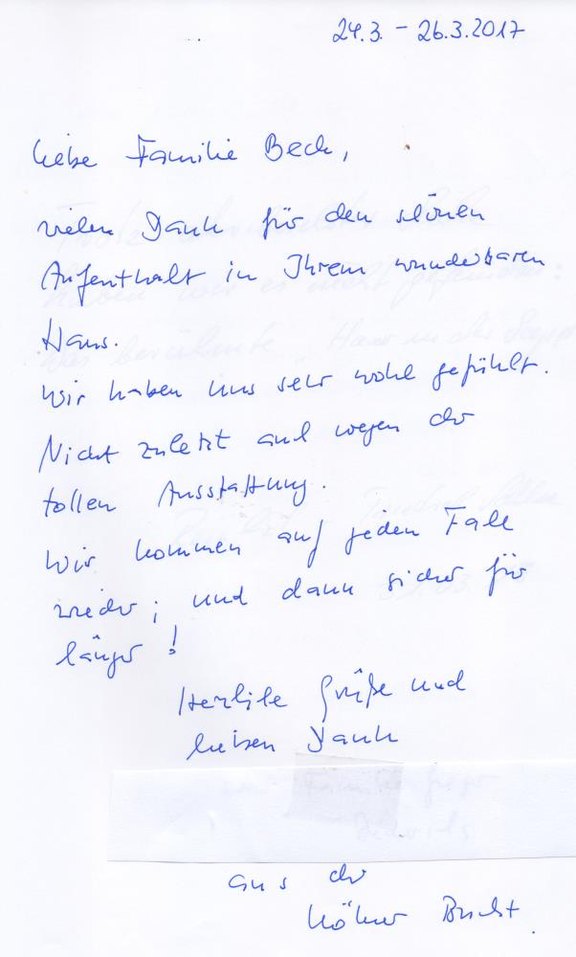 24.3. - 26.3.2017
Liebe Familie Beck,
vielen Dank für den schönen
Aufenthalt in Ihrem wunderbaren
Haus.
Wir haben uns sehr wohl gefühlt.
Nicht zuletzt auch wegen der
tollen Ausstattung.
Wir kommen auf jeden Fall
wieder; und dann sicher für
länger!
Herzliche Grüße und
lieben Dank
aus der
Kölner Bucht